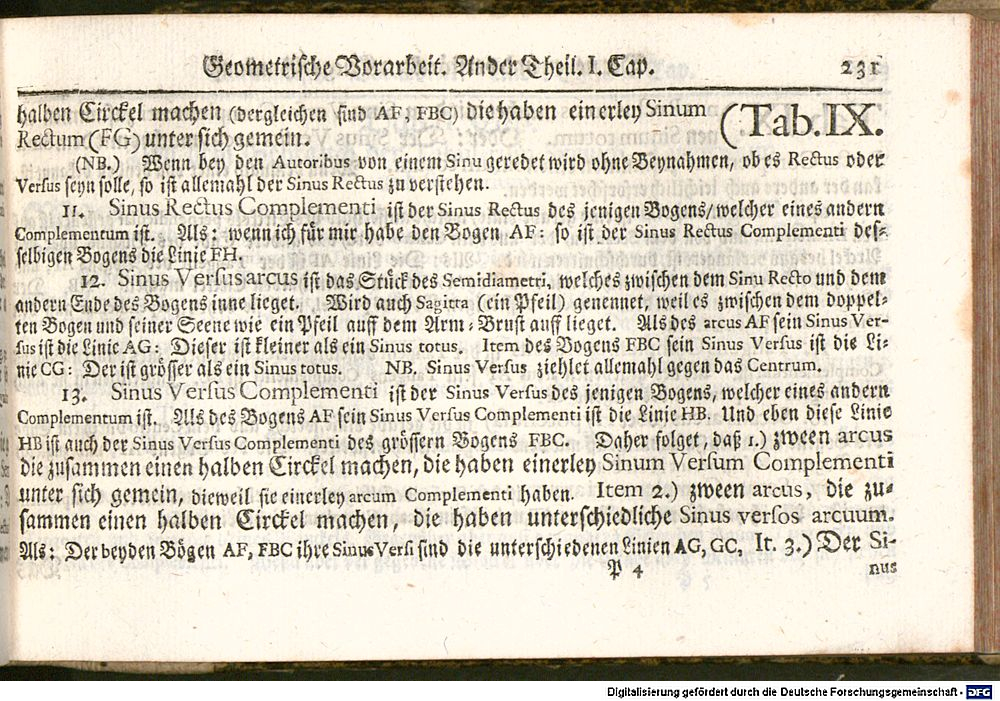 Geometrische Vorarbeit. Ander Theil. I. Cap. 231
halben Circkel machen (dergleichen sind AF, FBC) die haben einerley Sinum (Tab. IX.
Rectum (FG) unter sich gemein.
(NB.) Wenn bey den Autoribus von einem Sinu geredet wird ohne Beynahmen, ob es Rectus oder
Versus seyn solle, so ist allemahl der Sinus Rectus zu verstehen.
11. Sinus Rectus Complementi ist der Sinus Rectus des jenigen Bogens/ welcher eines andern
Complementum ist. Als: wenn ich für mir habe den Bogen AF: so ist der Sinus Rectus Complementi des-
selbigen Bogens die Linie FH.
12. Sinus Versus arcus ist das Stück des Semidiametri, welches zwischen dem Sinu Recto und dem
andern Ende des Bogens inne lieget. Wird auch Sagitta (ein Pfeil) genennet, weil es zwischen dem doppel-
ten Bogen und seiner Seene wie ein Pfeil auff dem Arm-Brust auff lieget. Als des arcus AF sein Sinus Ver-
sus ist die Linie AG: Dieser ist kleiner als ein Sinus totus. Item des Bogens FBC sein Sinus Versus ist die Li-
nie CG: Der ist grösser als ein Sinus totus. NB. Sinus Versus ziehlet allemahl gegen das Centrum.
13. Sinus Versus Complementi ist der Sinus Versus des jenigen Bogens, welcher eines andern
Complementum ist. Als des Bogens AF sein Sinus Versus Complementi ist die Linie HB. Und eben diese Linie
HB ist auch der Sinus Versus Complementi des grössern Bogens FBC. Daher folget, daß 1.) zween arcus
die zusammen einen halben Circkel machen, die haben einerley Sinum Versum Complementi
unter sich gemein, dieweil sie einerley arcum Complementi haben. Item 2.) zween arcus, die zu-
sammen einen halben Circkel machen, die haben unterschiedliche Sinus versos arcuum.
Als: Der beyden Bögen AF, FBC ihre Sinus Versi sind die unterschiedenen Linien AG, GC, It. 3.) Der Si-
P 4 nus
Digitalisierung gefördert durch die Deutsche Forschungsgemeinschaft - DFG